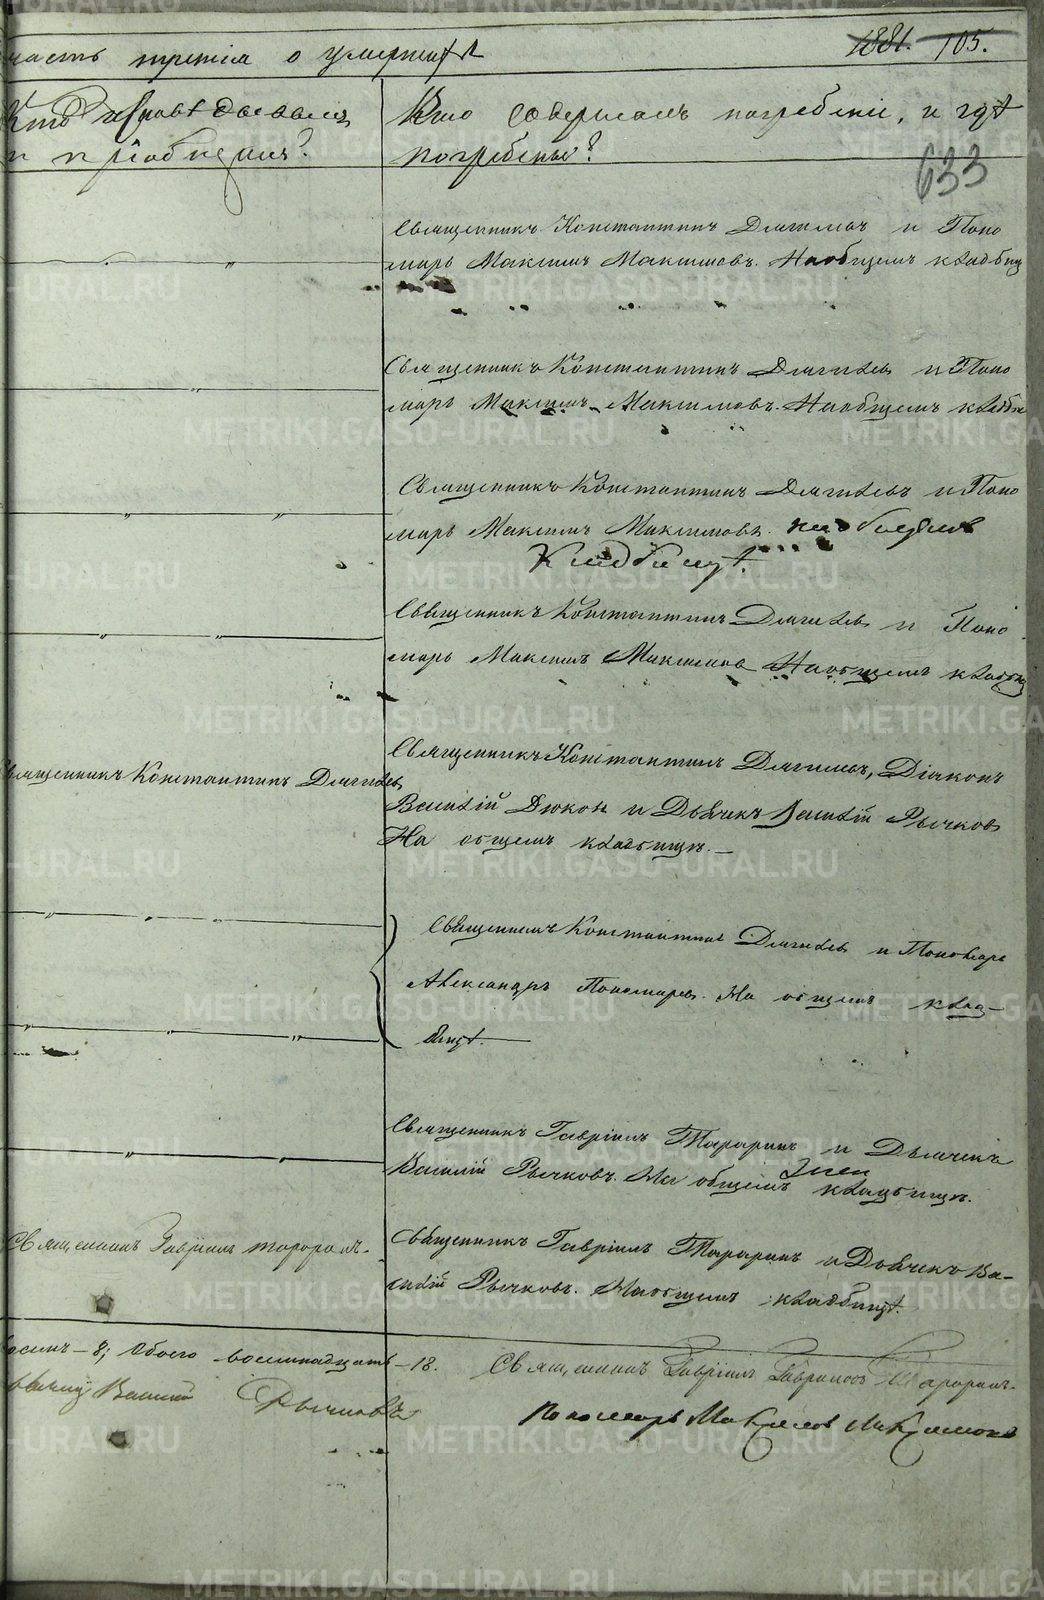 часть третія о умершихъ
1881. 105.
Кто исповѣдывалъ
и пріобщалъ?
Кто совершалъ погребеніе, и гдѣ
погребены?
633
Священникъ Константинъ Дягилевъ и Поно
марь Максимъ Максимовъ. На общемъ кладбищ
Священникъ Константинъ Дягилевъ и Поно
марь Максимъ Максимовъ. На общемъ кладби
Священникъ Константинъ Дягилевъ и Поно
марь Максимъ Максимовъ. на общемъ
Кладбищѣ.
Священникъ Константинъ Дягилевъ и Поно
марь Максимъ Максимовъ На общемъ кладбищ
Священникъ Константинъ Дягилевъ
Священникъ Константинъ Дягилевъ, Діаконъ
Василій Дюков и Дьячекъ Василій Рычковъ
На общемъ кладбищѣ.
Священникъ Константинъ Дягилевъ и Пономарь
Александръ Пономаревъ. На общемъ клад-
бищѣ.
Священникъ Гавріилъ Тараринъ и Дьячекъ
Василій Рычковъ. На общемъ кладбищѣ.
Священникъ Гавріилъ
Священникъ Гавріилъ Тараринъ и Дьячекъ Ва-
силій Рычковъ. На общемъ кладбищѣ.
восемь - 8; Обоего восемнадцать - 18.
Священникъ Гавріилъ
Василій Рычковъ
Пономарь Максимъ Максимовъ
METRIKI.GASO-URAL.RU